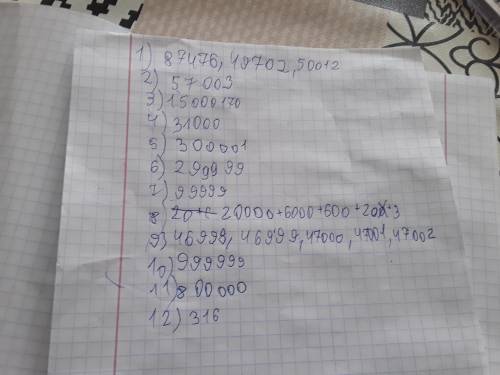 1) 87476, 49702, 50012
2) 57003
3) 15000170
4) 31000
5) 300001
6) 299999
7) 99999
8) 20000+6000+600+20+3
9) 46998, 46999, 47000, 47001, 47002
10) 999999
11) 800000
12) 316